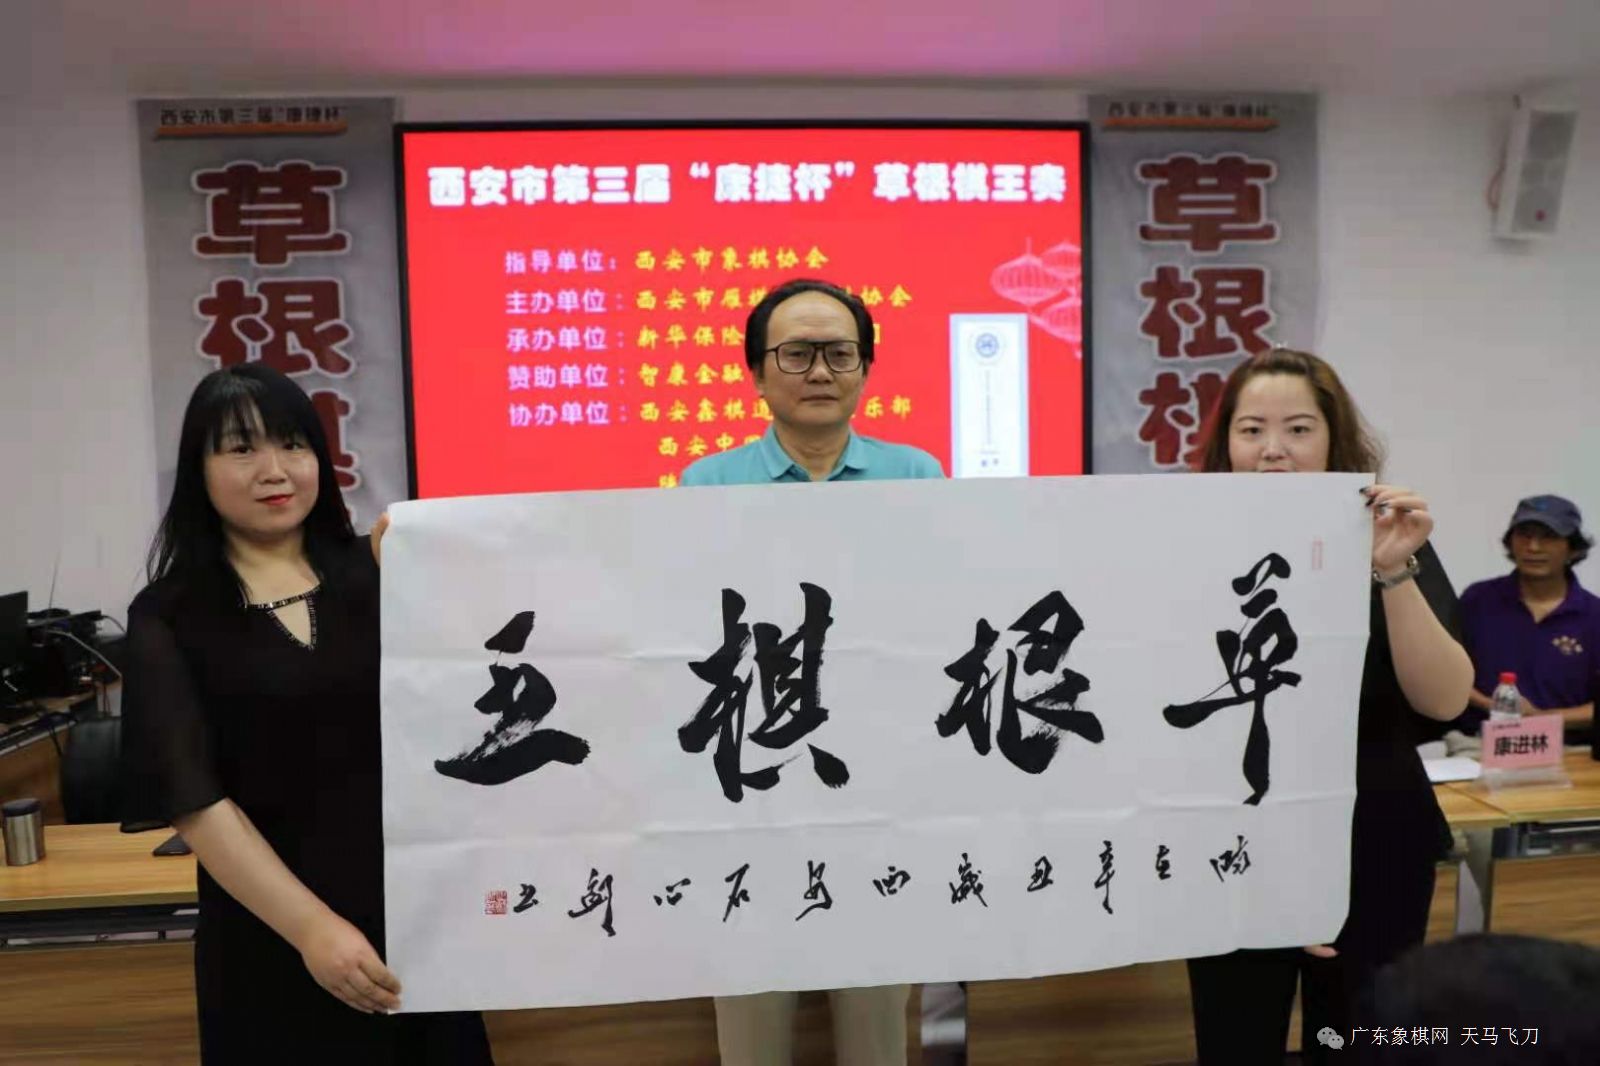 西安市第三届“康捷杯”
草根棋
西安市第三届“康捷杯”
草根棋
西安市第三届“康捷杯”草根棋王赛
指导单位：西安市象棋协会
主办单位：西安市雁棋 协会
承办单位：新华保险
赞助单位：智康金融
协办单位：西安鑫棋通 乐部
西安中国
陕
草根棋王
时在辛丑岁西安石心郭书
康进林
广东象棋网 天马飞刀